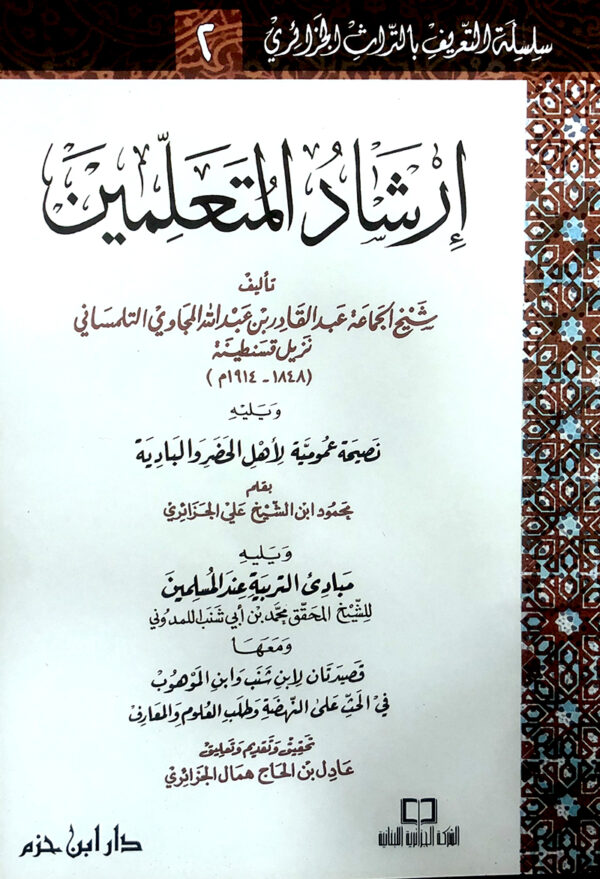 سلسلة التعريف بالتراث الجزائري ٢
إِرْشَادُ المُتَعَلِّمينَ
تأليف
شيخ الجماعة عبد القادر بن عبد الله المجاوي التلمساني
نزيل قسنطينة
(١٨٤٨ - ١٩١٤م)
ويليه
نصيحة عمومية لأهل الحضر والبادية
بقلم
محمود ابن الشيخ علي الجزائري
ويليه
مبادئ التربية عند المسلمين
للشيخ المحقق محمد بن أبي شنب اللمدوني
ومعها
قصيدتان لابن شنب وابن الموهوب
في الحث على النهضة وطلب العلوم والمعارف
تحقيق وتقديم وتعليق
عادل بن الحاج همال الجزائري
الشركة الجزائرية اللبنانية
دار ابن حزم